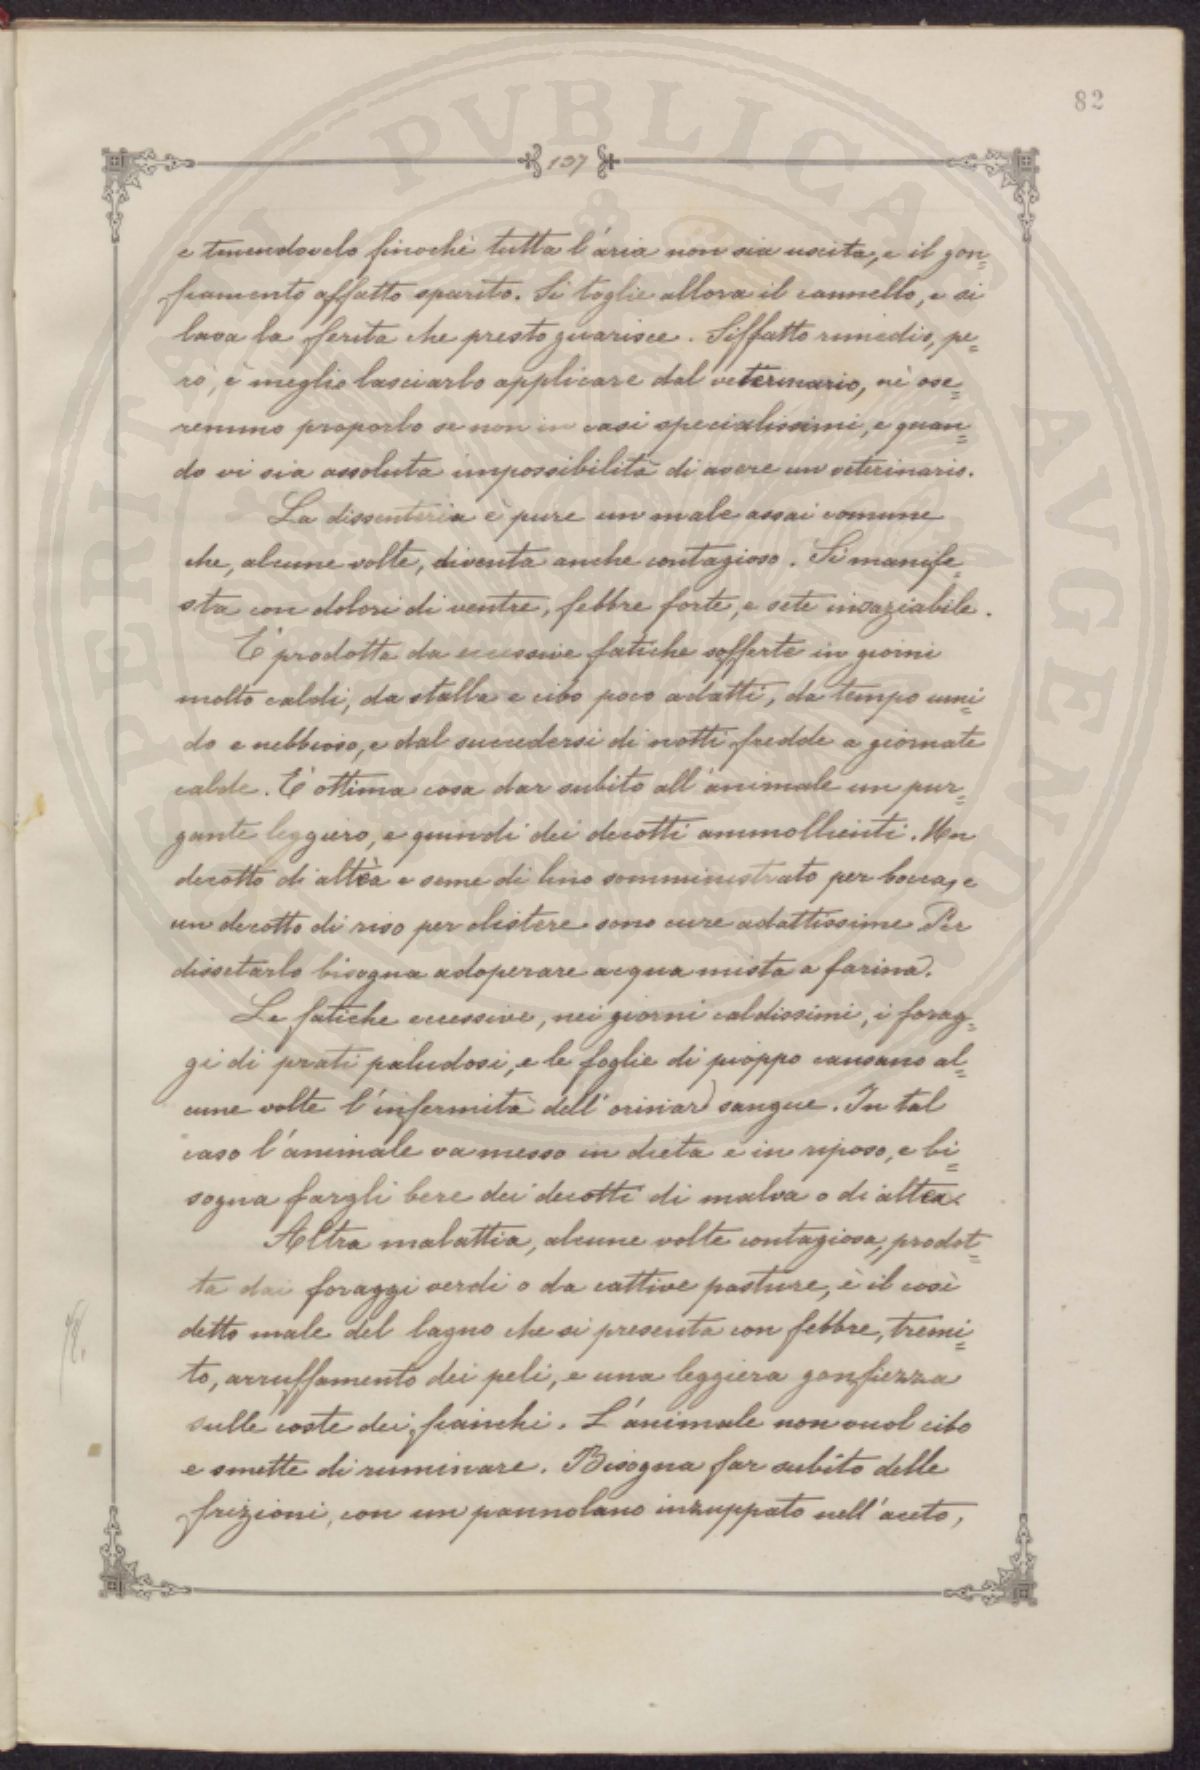 82
137
e tenendovelo finochè tutta l'aria non sia uscita, e il gon=
fiamento affatto sparito. Si toglie allora il cannello, e si
lava la ferita che presto guarisce. Siffatto rimedio, pe=
rò, è meglio lasciarlo applicare dal veterinario, nè ose=
remmo proporlo se non in casi specialissimi, e quan=
do vi sia assoluta impossibilità di avere un veterinario.
La dissenteria è pure un male assai comune
che, alcune volte, diventa anche contagioso. Si manife=
sta con dolori di ventre, febbre forte, e sete insaziabile.
E' prodotta da eccessive fatiche sofferte in giorni
molto caldi, da stalla e cibo poco adatti, da tempo umi=
do e nebbioso, e dal succedersi di notti fredde a giornate
calde. E' ottima cosa dar subito all'animale un pur=
gante leggiero, e quindi dei decotti ammollienti. Un
decotto di altèa e seme di lino somministrato per bocca, e
un decotto di riso per clistere sono cure adattissime. Per
dissetarlo bisogna adoperare acqua mista a farina.
Le fatiche eccessive, nei giorni caldissimi, i forag=
gi di prati paludosi, e le foglie di pioppo causano al=
cune volte l'infermità dell'orinar sangue. In tal
caso l'animale va messo in dieta e in riposo, e bi=
sogna fargli bere dei decotti di malva o di altea.
Altra malattia, alcune volte contagiosa, prodot=
ta dai foraggi verdi o da cattive pasture, è il così
detto male del lagno che si presenta con febbre, tremi=
to, arruffamento dei peli, e una leggiera gonfiezza
sulle coste dei fianchi. L'animale non vuol cibo
e smette di ruminare. Bisogna far subito delle
frizioni, con un pannolano inzuppato nell'aceto,
PROSPERITATI PVBLICAE AVGENDAE